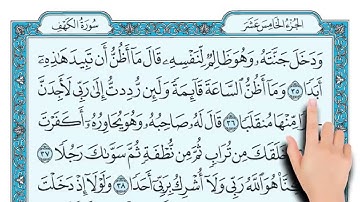 الجزء الخامس عشر
سورة الكهف
وَدَخَلَ جَنَّتَهُۥ وَهُوَ ظَالِمٌ لِّنَفْسِهِۦ قَالَ مَآ أَظُنُّ أَن تَبِيدَ هَٰذِهِۦٓ
أَبَدًا ٣٥ وَمَآ أَظُنُّ ٱلسَّاعَةَ قَآئِمَةً وَلَئِن رُّدِدتُّ إِلَىٰ رَبِّي لَأَجِدَنَّ
مِّنْهَا مُنقَلَبًا ٣٦ قَالَ لَهُۥ صَاحِبُهُۥ وَهُوَ يُحَاوِرُهُۥٓ أَكَفَرْتَ
خَلَقَكَ مِن تُرَابٍ ثُمَّ مِن نُّطْفَةٍ ثُمَّ سَوَّىٰكَ رَجُلًا ٣٧
هُوَ ٱللَّهُ رَبِّي وَلَآ أُشْرِكُ بِرَبِّيٓ أَحَدًا ٣٨ وَلَوْلَآ إِذْ دَخَلْتَ